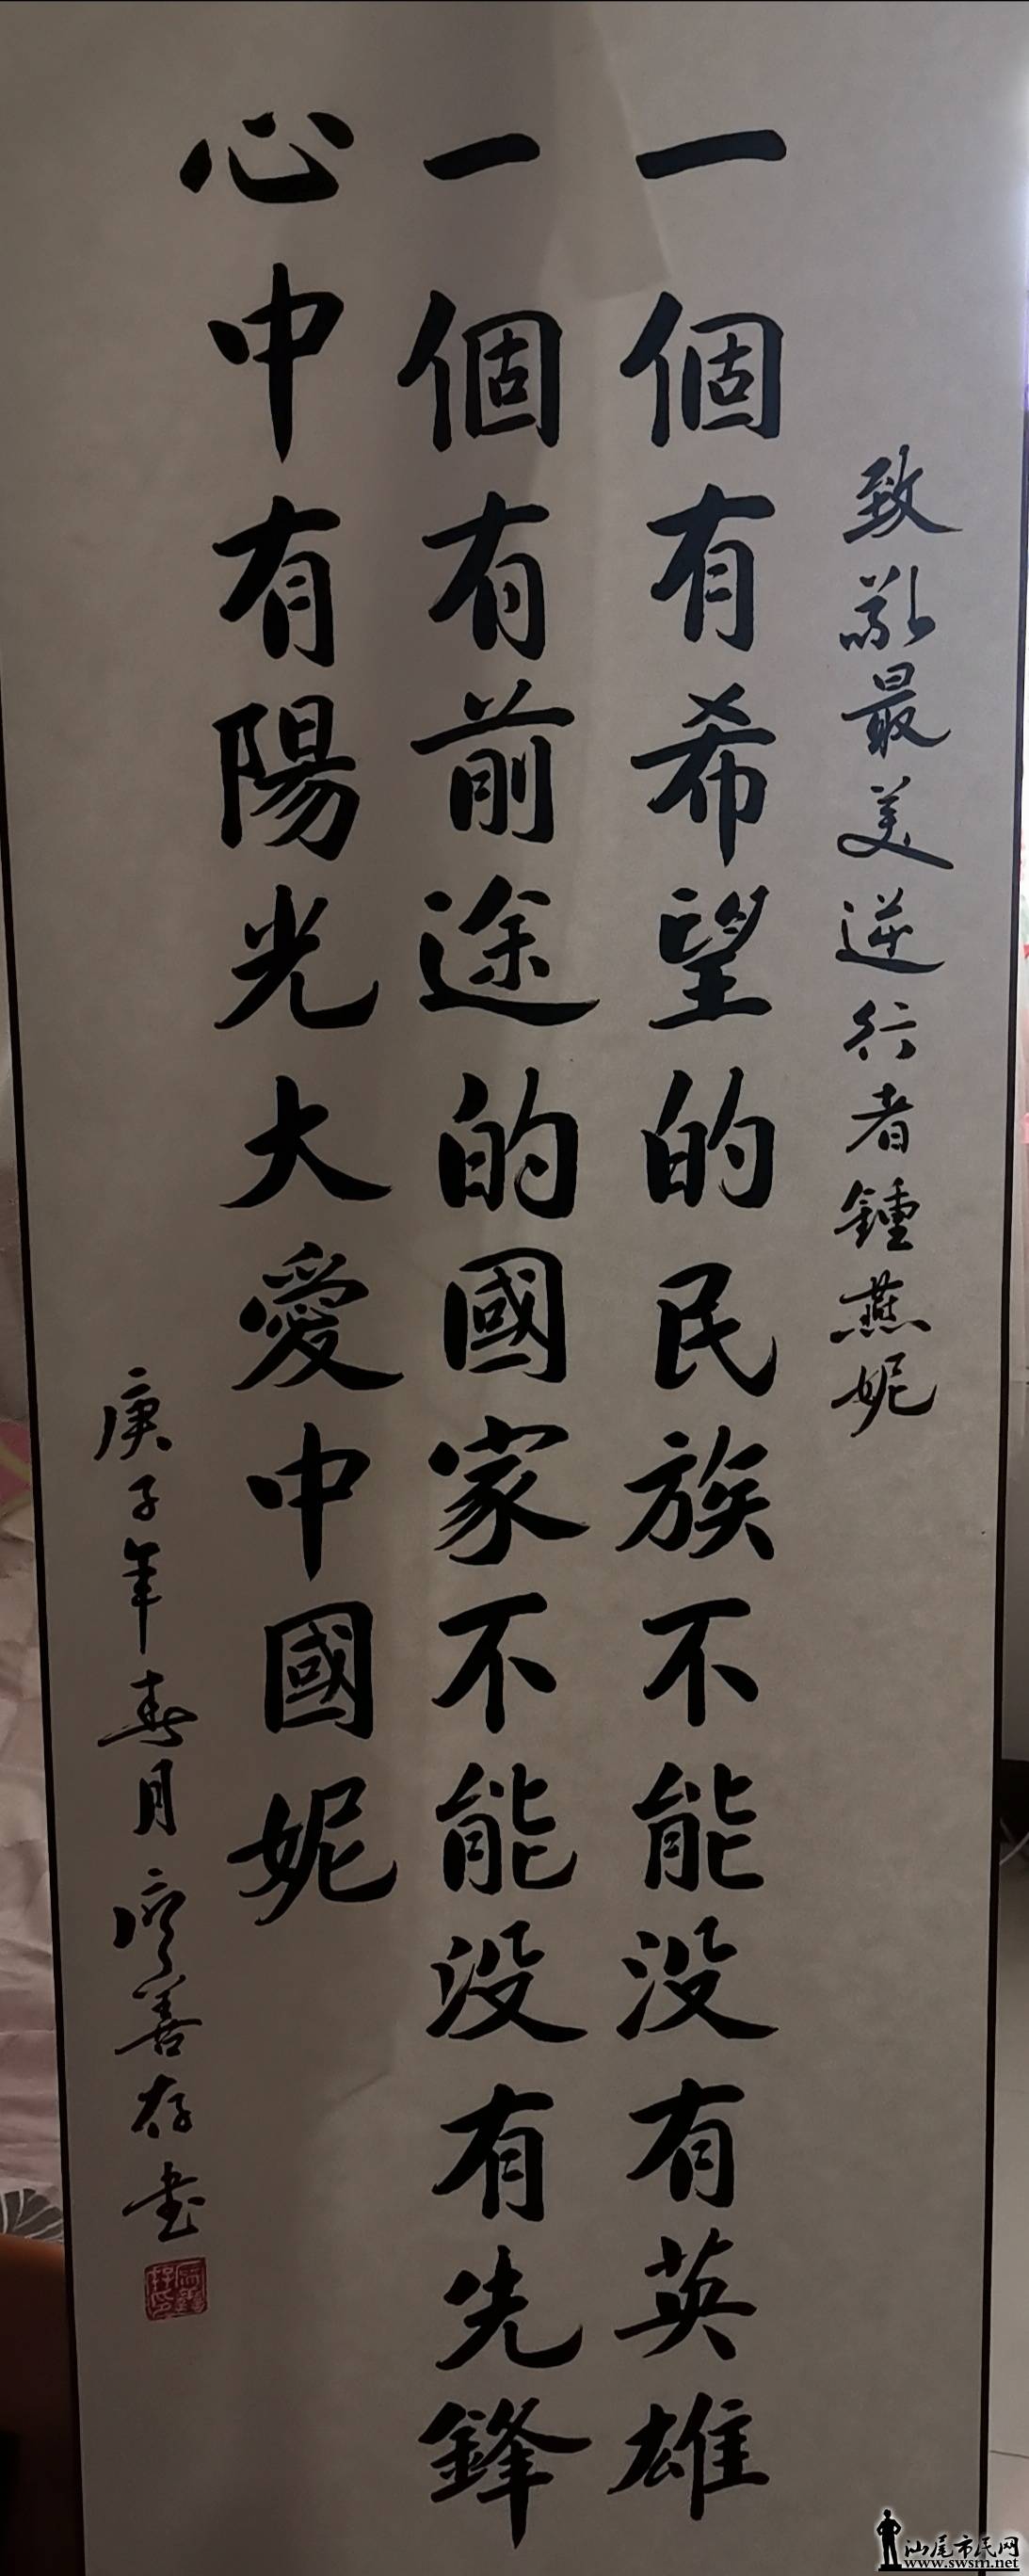 致敬最美逆行者鍾燕妮
一個有希望的民族不能没有英雄
一個有前途的國家不能没有先鋒
心中有陽光大愛中國妮
庚子年春月廖善存书
汕尾市民网
www.swsm.net